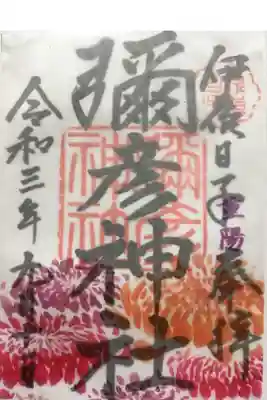 伊夜日子 奉拝
重陽
彌彦神社
彌彦神社
令和三年九月日